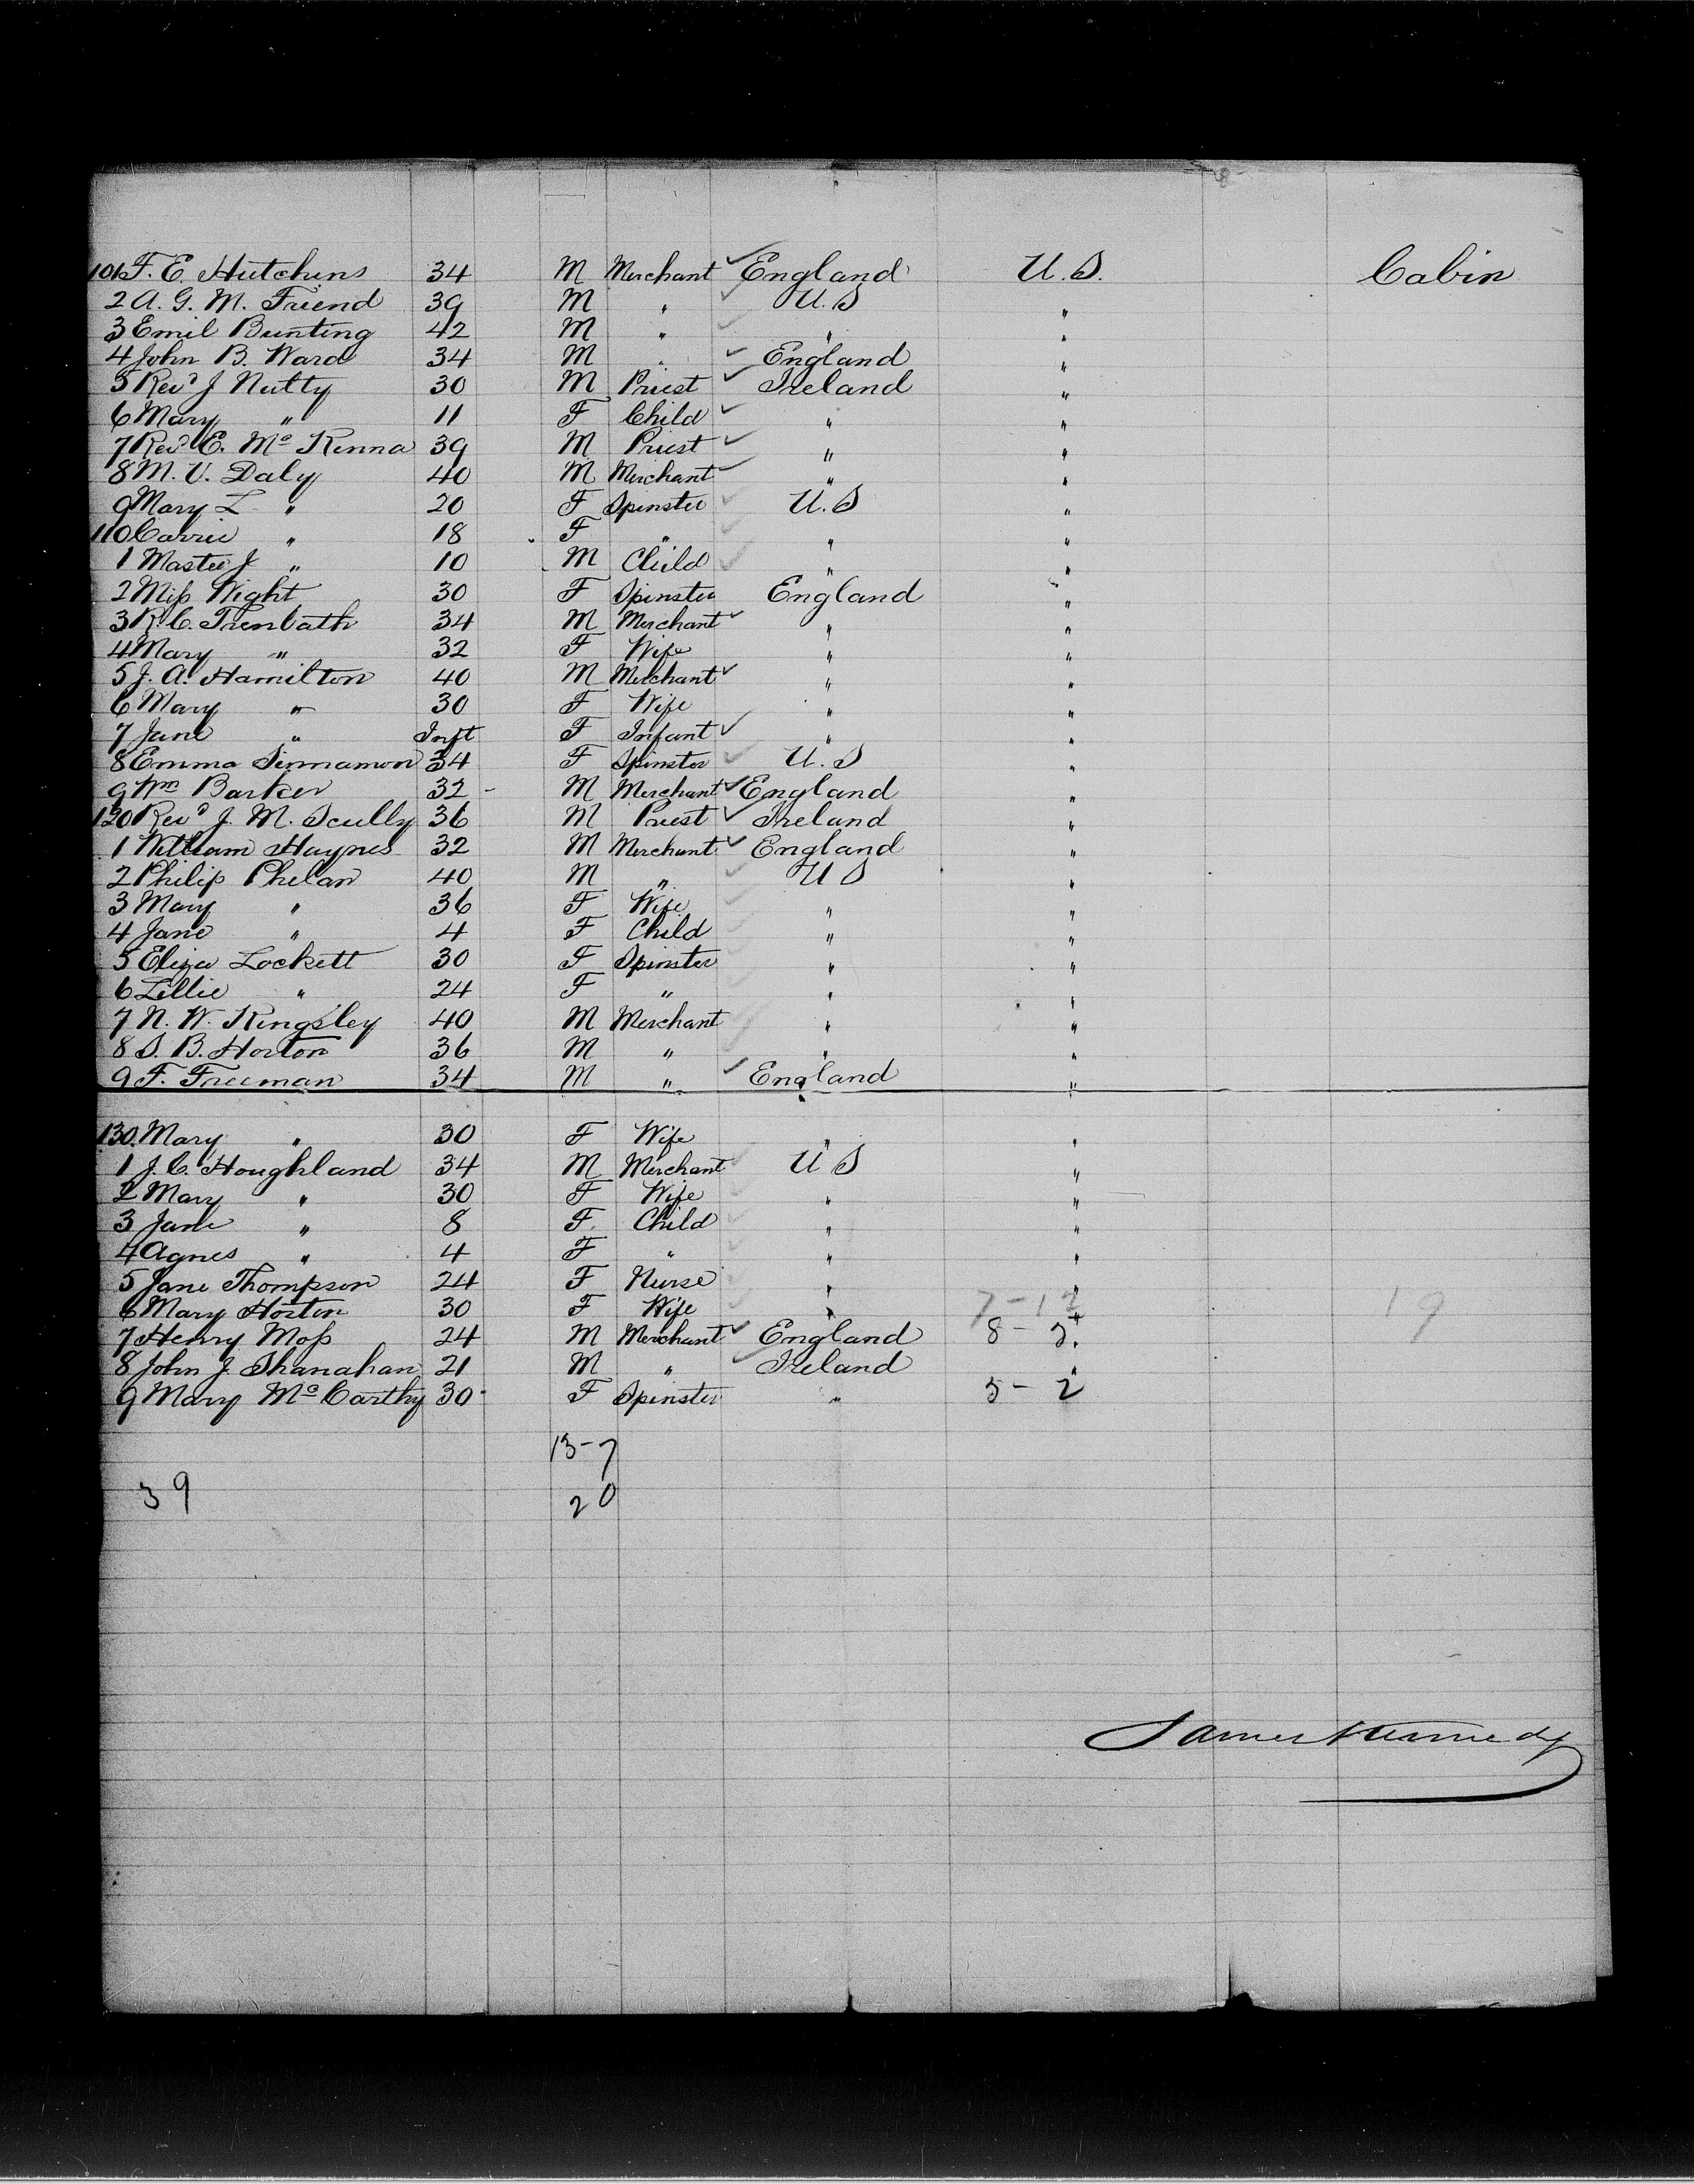 101 F. E. Hutchins 34 M Merchant ✓ England U.S. Cabin
2 A. G. M. Friend 39 M " ✓ U.S "
3 Emil Bunting 42 M " ✓ " "
4 John B. Ward 34 M " ✓ England "
5 Revd J Nutty 30 M Priest ✓ Ireland "
6 Mary " 11 F Child ✓ " "
7 Revd E. Mc Kenna 39 M Priest ✓ " "
8 M. V. Daly 40 M Merchant ✓ " "
9 Mary L " 20 F Spinster ✓ U.S "
110 Carrie " 18 F " ✓ " "
1 Master J " 10 M Child ✓ " "
2 Miss Wight 30 F Spinster England "
3 R. C. Trenbath 34 M Merchant ✓ " "
4 Mary " 32 F Wife " "
5 J. A. Hamilton 40 M Merchant ✓ " "
6 Mary " 30 F Wife " "
7 Jane " Inft F Infant ✓ " "
8 Emma Sinnamon 34 F Spinster ✓ U.S "
9 Wm Barker 32 - M Merchant ✓ England "
120 Revd J. M. Scully 36 M Priest ✓ Ireland "
1 William Haynes 32 M Merchant ✓ England "
2 Philip Phelan 40 M " ✓ U S "
3 Mary " 36 F Wife ✓ " "
4 Jane " 4 F Child ✓ " "
5 Eliza Lockett 30 F Spinster ✓ " "
6 Lillie " 24 F " ✓ " "
7 N. W. Kingsley 40 M Merchant ✓ " "
8 S. B. Horton 36 M " ✓ " "
9 F. Freeman 34 M " ✓ England "
130 Mary " 30 F Wife " "
1 J. C. Houghland 34 M Merchant ✓ U S "
2 Mary " 30 F Wife ✓ " "
3 Jane " 8 F Child ✓ " "
4 Agnes " 4 F " ✓ " "
5 Jane Thompson 24 F Nurse ✓ " "
6 Mary Horton 30 F Wife ✓ " 7-12 19
7 Henry Moss 24 M Merchant ✓ England 8-
8 John J. Shanahan 21 M " ✓ Ireland "
9 Mary Mc Carthy 30 F Spinster " 5-2
13-7
39 20
James Kennedy